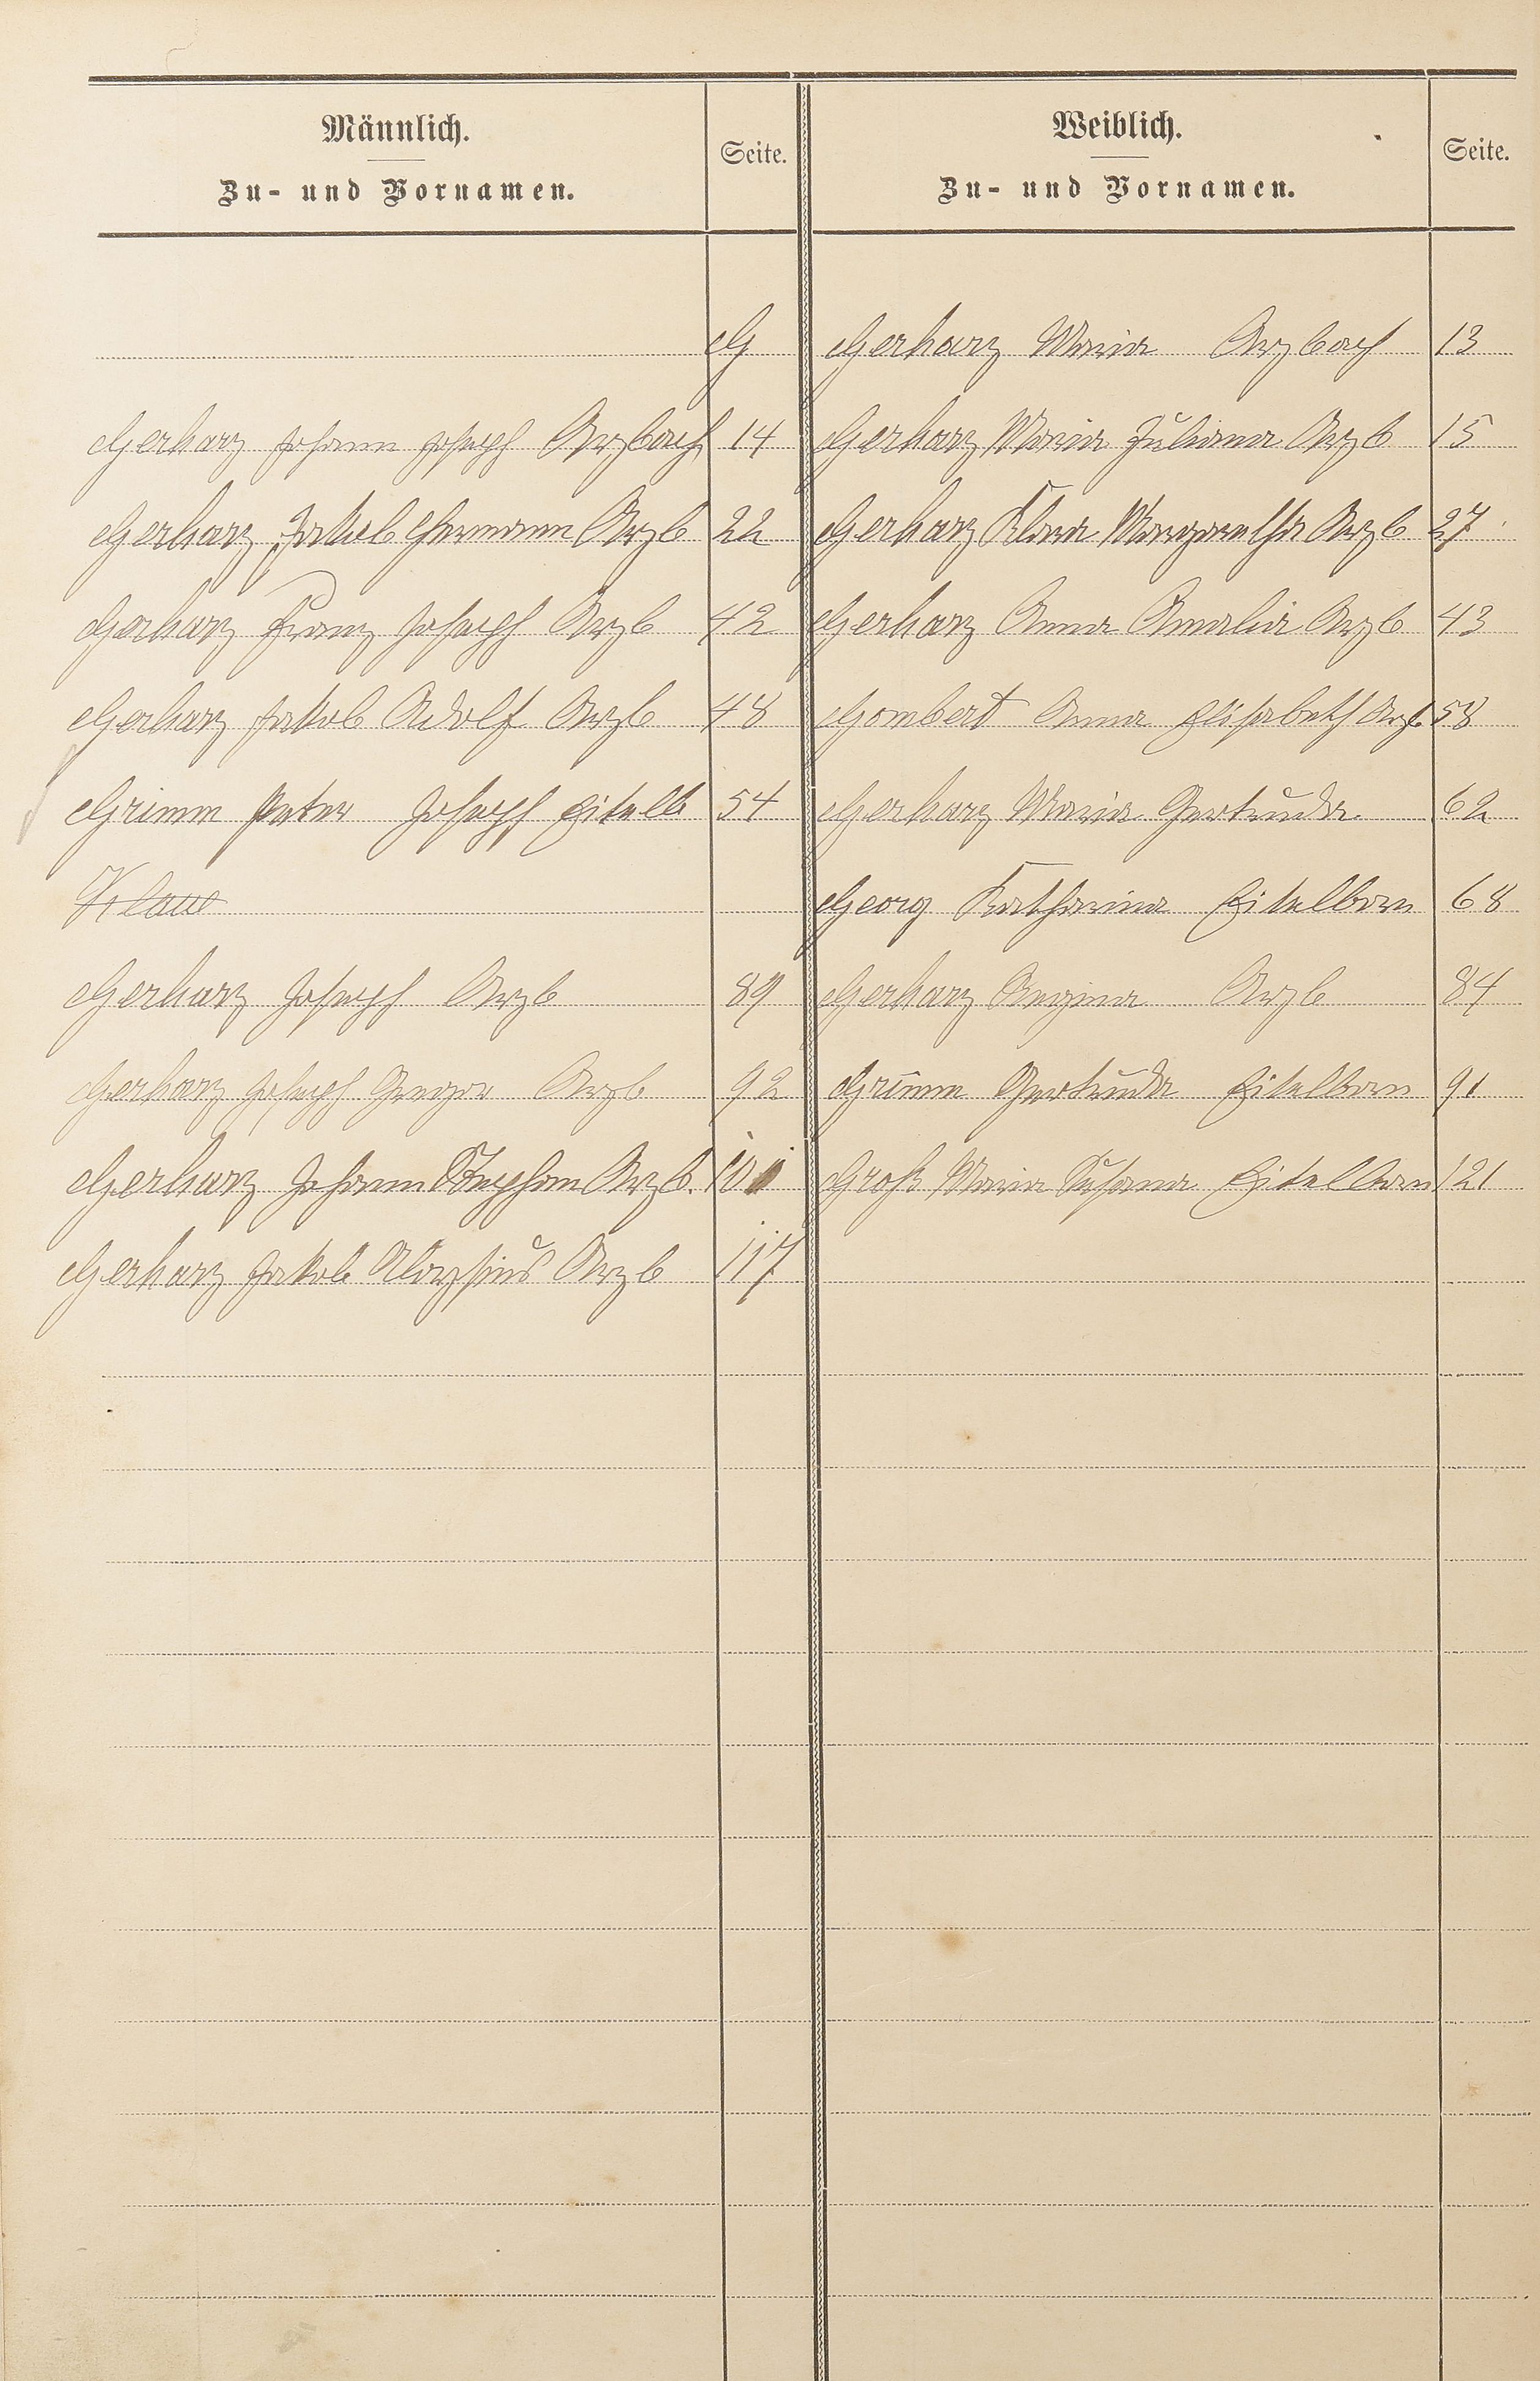 Männlich.
Zu- und Vornamen.
Seite.
Weiblich.
Zu- und Vornamen.
Seite.
G Gerharz Maria Arzbach 13
Gerharz Johann Joseph Arzbach 14 Gerharz Maria Juliana Arzb 15
Gerharz Jakob Hermann Arzb 22 Gerharz Klara Margaretha Arzb 27
Gerharz Franz Joseph Arzb 42 Gerharz Anna Amalia Arzb 43
Gerharz Jakob Adolf Arzb 48 Gombert Anna Elisabeth Arzb 58
Grimm Peter Joseph Eitelb 54 Gerharz Maria Gertruda 62
Klaue Georg Katharina Eitelborn 68
Gerharz Joseph Arzb 89 Gerharz Regina Arzb 84
Gerharz Joseph Gregor Arzb 92 Grimm Gertruda Eitelborn 91
Gerharz Johann Stephan Arzb. 101 Groß Maria Susana Eitelborn 121
Gerharz Jakob Aloysius Arzb 117